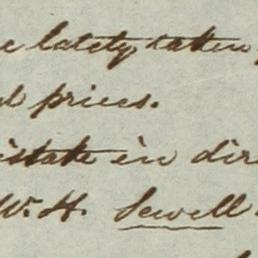 lately taken
prices.
in dir
W. H. Sewell.